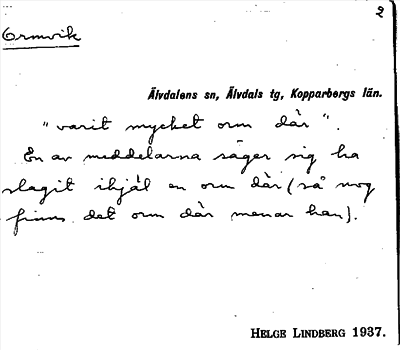 2
Ormvik
Älvdalens sn, Älvdals tg, Kopparbergs län.
"varit mycket orm där".
En av meddelarna säger sig ha
slagit ihjäl en orm där (så nog
finns det orm där menar han).
HELGE LINDBERG 1937.